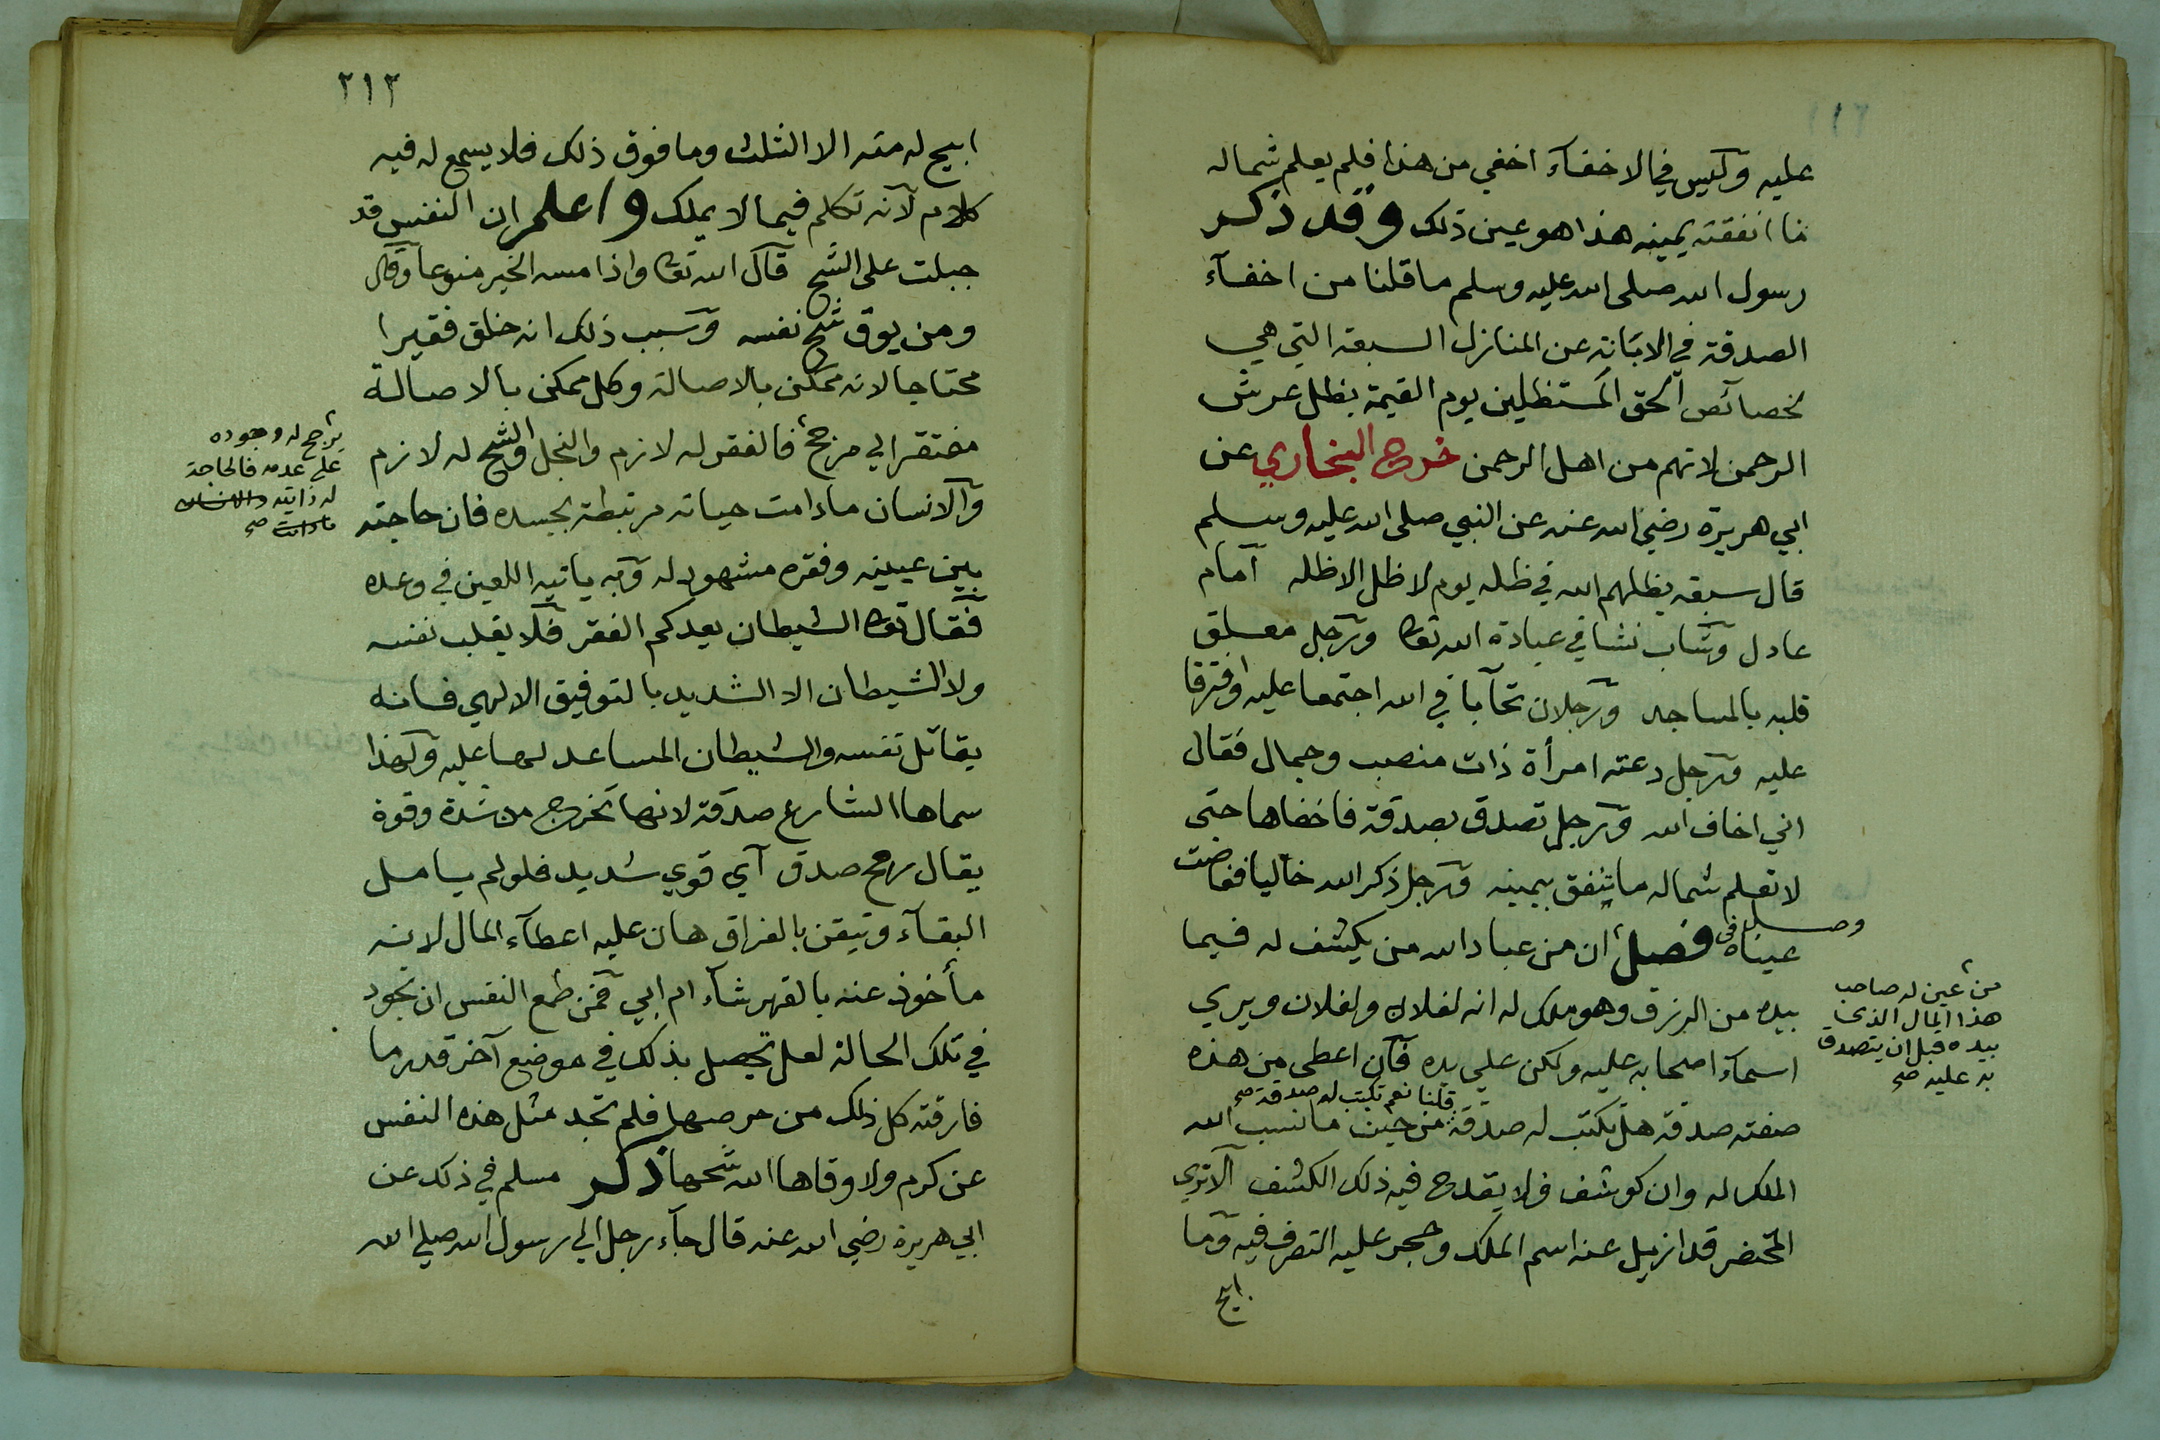 عليه وليس في الاخفآء اخفي من هذا فلم يعلم شماله
ما انفقته يمينه هذا هو عين ذلك وقد ذكر
رسول الله صلى الله عليه وسلم ما قلنا من اخفآء
الصدقة في الابانة عن المنازل السبعة التي هي
لخصآئص الحق المستظلين يوم القيمة بظل عرش
الرحمن لانهم من اهل الرحمن خرج البخاري عن
ابي هريرة رضي الله عنه عن النبي صلى الله عليه وسلم
قال سبعة يظلهم الله في ظله يوم لا ظل الا ظله امام
عادل وشاب نشا في عبادة الله تعا ورجل معلق
قلبه بالمساجد ورجلان تحآبا في الله اجتمعا عليه وافترقا
عليه ورجل دعته امرأة ذات منصب وجمال فقال
اني اخاف الله ورجل تصدق بصدقة فاخفاها حتى
لا تعلم شماله ما تنفق يمينه ورجل ذكر الله خاليا ففاضت
عيناه وصل في فصل ان من عباد الله من يكشف له فيما
بيده من الرزق وهو ملك له انه لفلان ولفلان ويري
اسمآء اصحابه عليه ولكن علي يده فان اعطى من هذه
صفته صدقة هل تكتب له صدقة من حيث ما نسب الله
قلنا نعم تكتب له صدقة صح
الملك له وان كوشف فلا يقدح فيه ذلك الكشف الا تري
المحتضر قد ازيل عنه اسم الملك وحجر عليه التصرف فيه وما
ابيح
من عين له صاحب
هذا المال الذي
بيده قبل ان يتصدق
به عليه صح
٢١٢
ابيح له منه الا الثلث وما فوق ذلك فلا يسمع له فيه
كلام لانه تكلم فيما لا يملك واعلم ان النفس قد
جبلت على الشح قال الله تعا واذا مسه الخير منوعا وقال
ومن يوق شح نفسه وسبب ذلك انه خلق فقيرا
محتاجا لانه ممكن بالاصالة وكل ممكن بالاصالة
مفتقر الي مرجح فالفقر له لازم والبخل والشح له لازم
والانسان مادامت حياته مرتبطة بجسده فان حاجته
بين عينيه وفقره مشهود له وبه ياتيه اللعين في وعده
فقال تعا الشيطان يعدكم الفقر فلا يغلب نفسه
ولا الشيطان الا الشديد بالتوفيق الالهي فانه
يقاتل نفسه والشيطان المساعد لها عليه ولهذا
سماها الشارع صدقة لانها تخرج من شدة وقوة
يقال رمح صدق آي قوي شديد فلو لم يامل
البقآء وتيقن بالفراق هان عليه اعطآء المال لانه
مأخوذ عنه بالقهر شآء ام ابي فمن طمع النفس ان تجود
في تلك الحالة لعل تحصل بذلك في موضع آخر قدر ما
فارقته كل ذلك من حرصها فلم تجد مثل هذه النفس
عن كرم ولا وقاها الله شحها ذكر مسلم في ذلك عن
ابي هريرة رضي الله عنه قال جآء رجل الي رسول الله صلي الله
يرجح له وجوده
علي عدمه فالحاجة
له ذاتية والانسان
مادامت صح